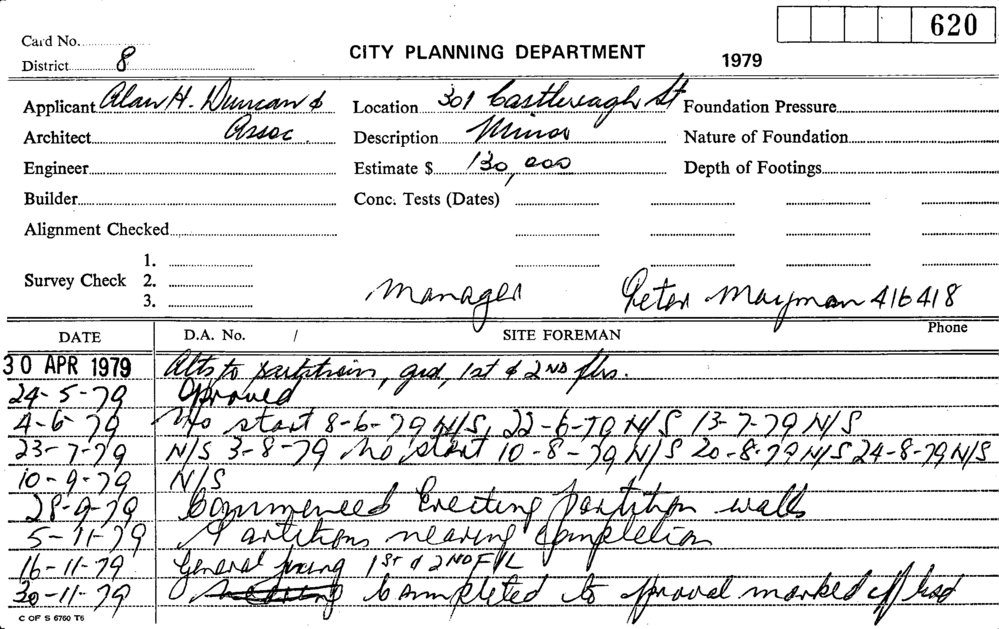 620
Card No.
CITY PLANNING DEPARTMENT
1979
District 8
Applicant Alan H. Duncan &
Location 301 Castlereagh St
Foundation Pressure
Architect Assoc.
Description Minor
Nature of Foundation
Engineer
Estimate $ 130,000
Depth of Footings
Builder
Conc. Tests (Dates)
Alignment Checked
Survey Check 1.
2.
3.
Manager Peter Mayman 416418
DATE D.A. No. / SITE FOREMAN Phone
30 APR 1979 Alts to partitions, grd, 1st & 2ND flrs.
24-5-79 Aproved
4-6-79 No start 8-6-79 N/S, 22-6-79 N/S 13-7-79 N/S
23-7-79 N/S 3-8-79 No start 10-8-79 N/S 20-8-79 N/S 24-8-79 N/S
10-9-79 N/S
28-9-79 Commenced Erecting partition walls
5-11-79 Partitions nearing completion
16-11-79 General fixing 1st & 2ND F/L
30-11-79 completed to aproval marked off
C OF S 6760 T6